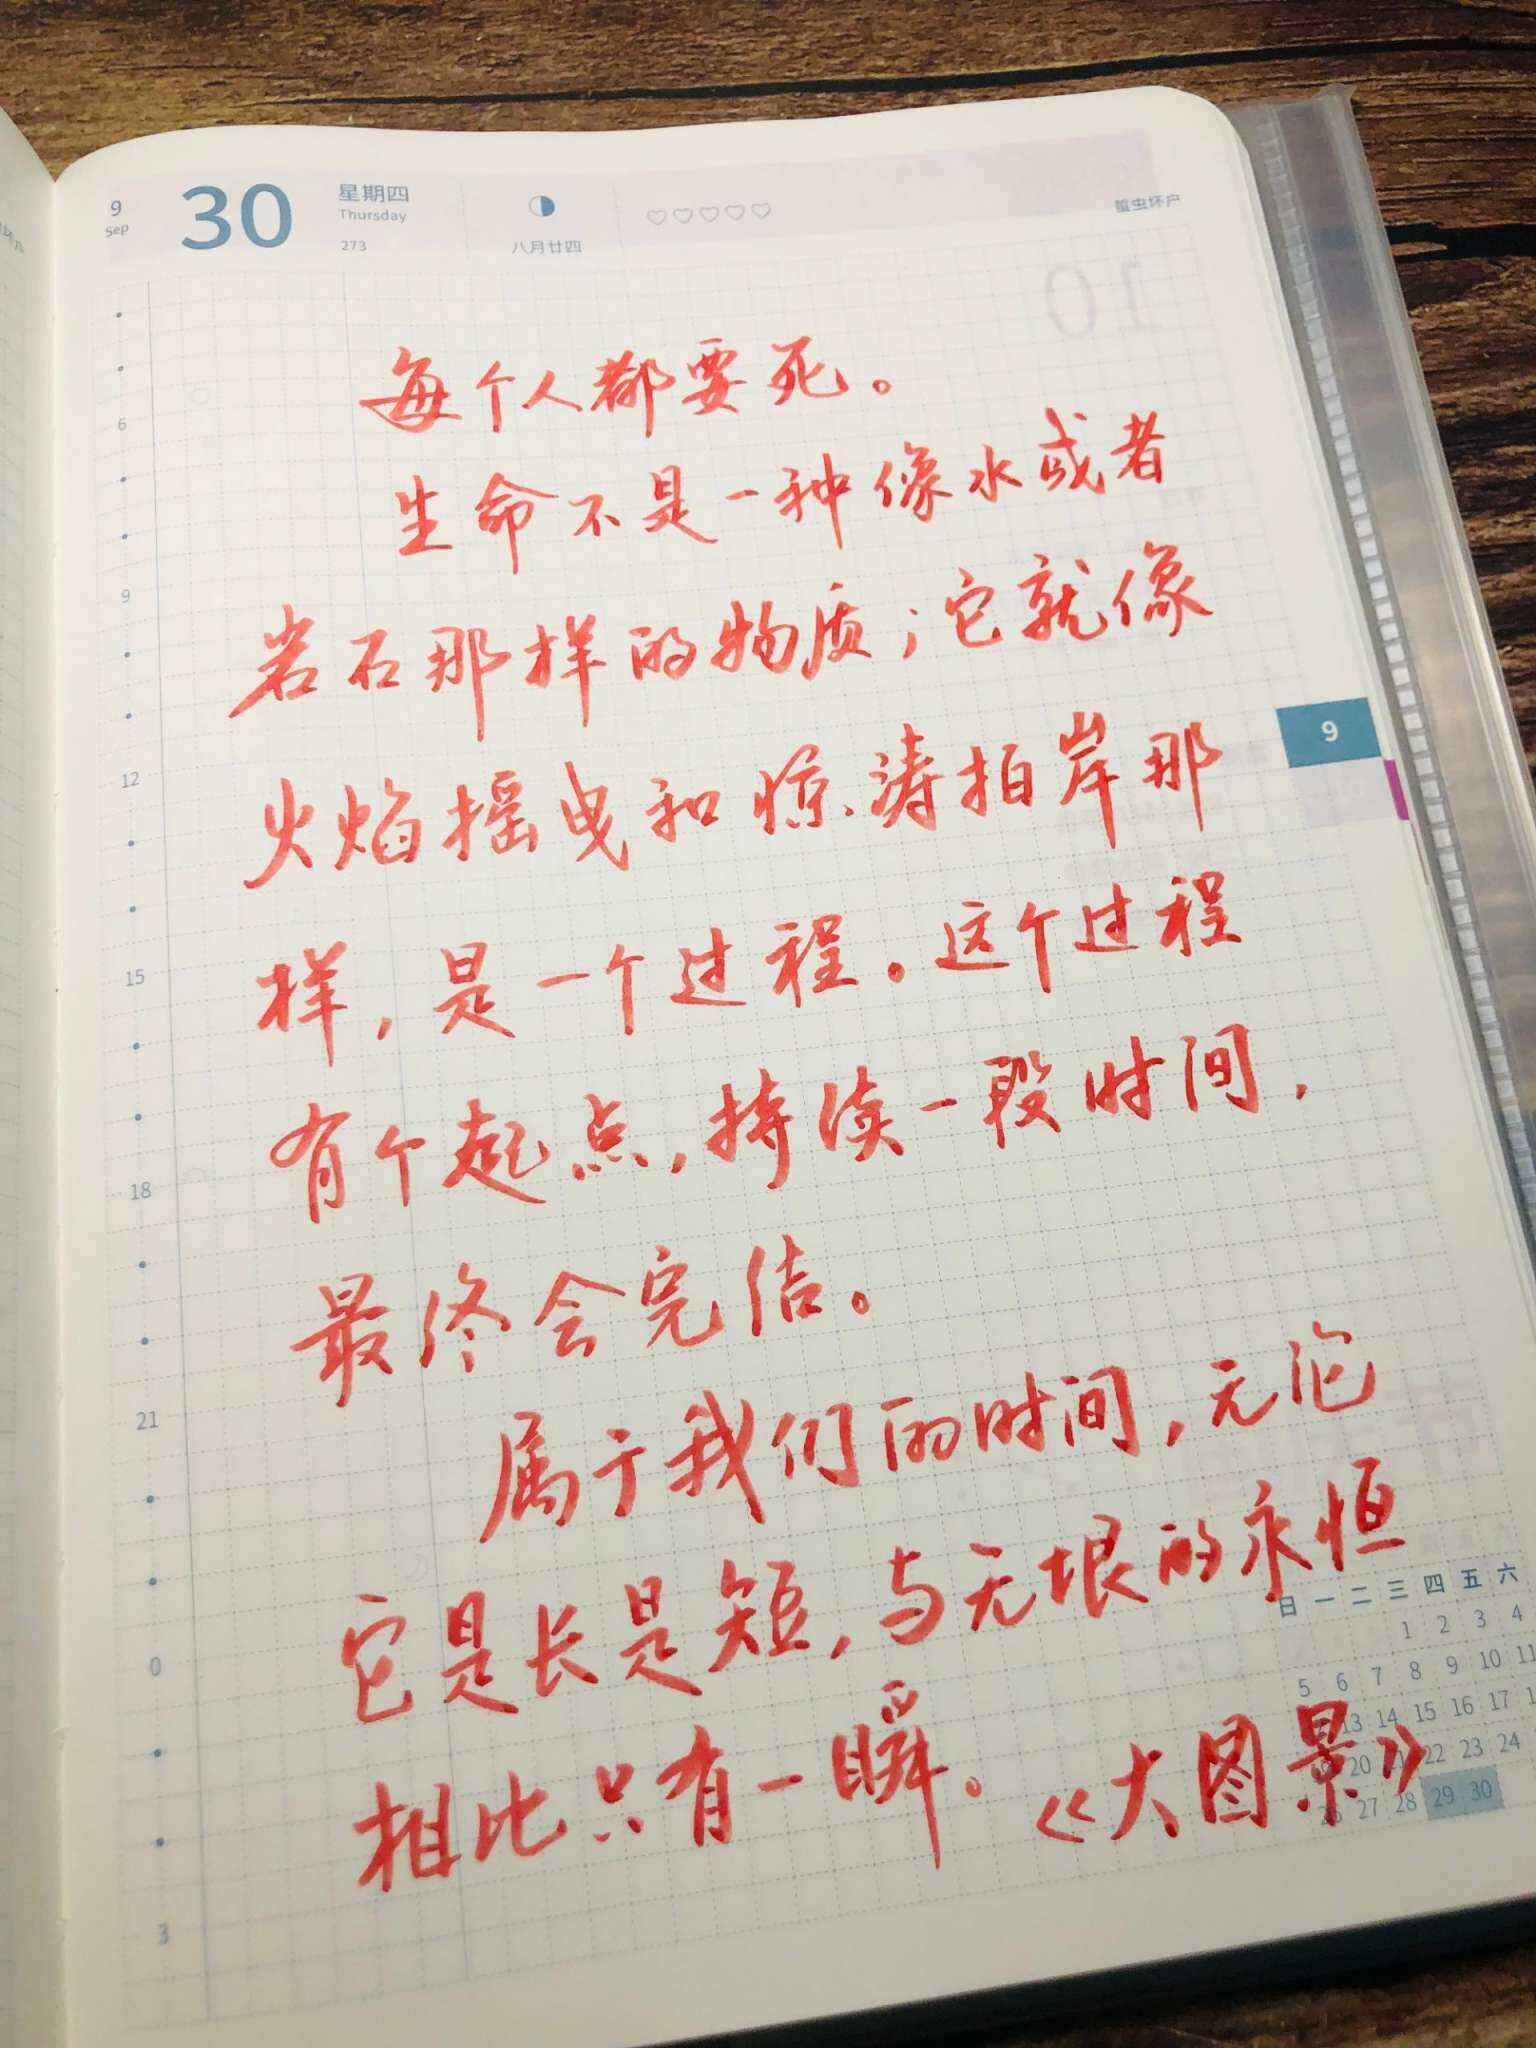 9
Sep
30
星期四
Thursday
273
八月廿四
蛰虫坏户
10
每个人都要死。
生命不是一种像水或者
岩石那样的物质；它就像
火焰摇曳和惊涛拍岸那
样，是一个过程。这个过程
有个起点，持续一段时间，
最终会完结。
属于我们的时间，无论
它是长是短，与无垠的永恒
相比只有一瞬。《大图景》
6
9
12
15
18
21
0
3
9
日 一 二 三 四 五 六
1 2 3 4
5 6 7 8 9 10 11
13 14 15 16 17
20 21 22 23 24
26 27 28 29 30